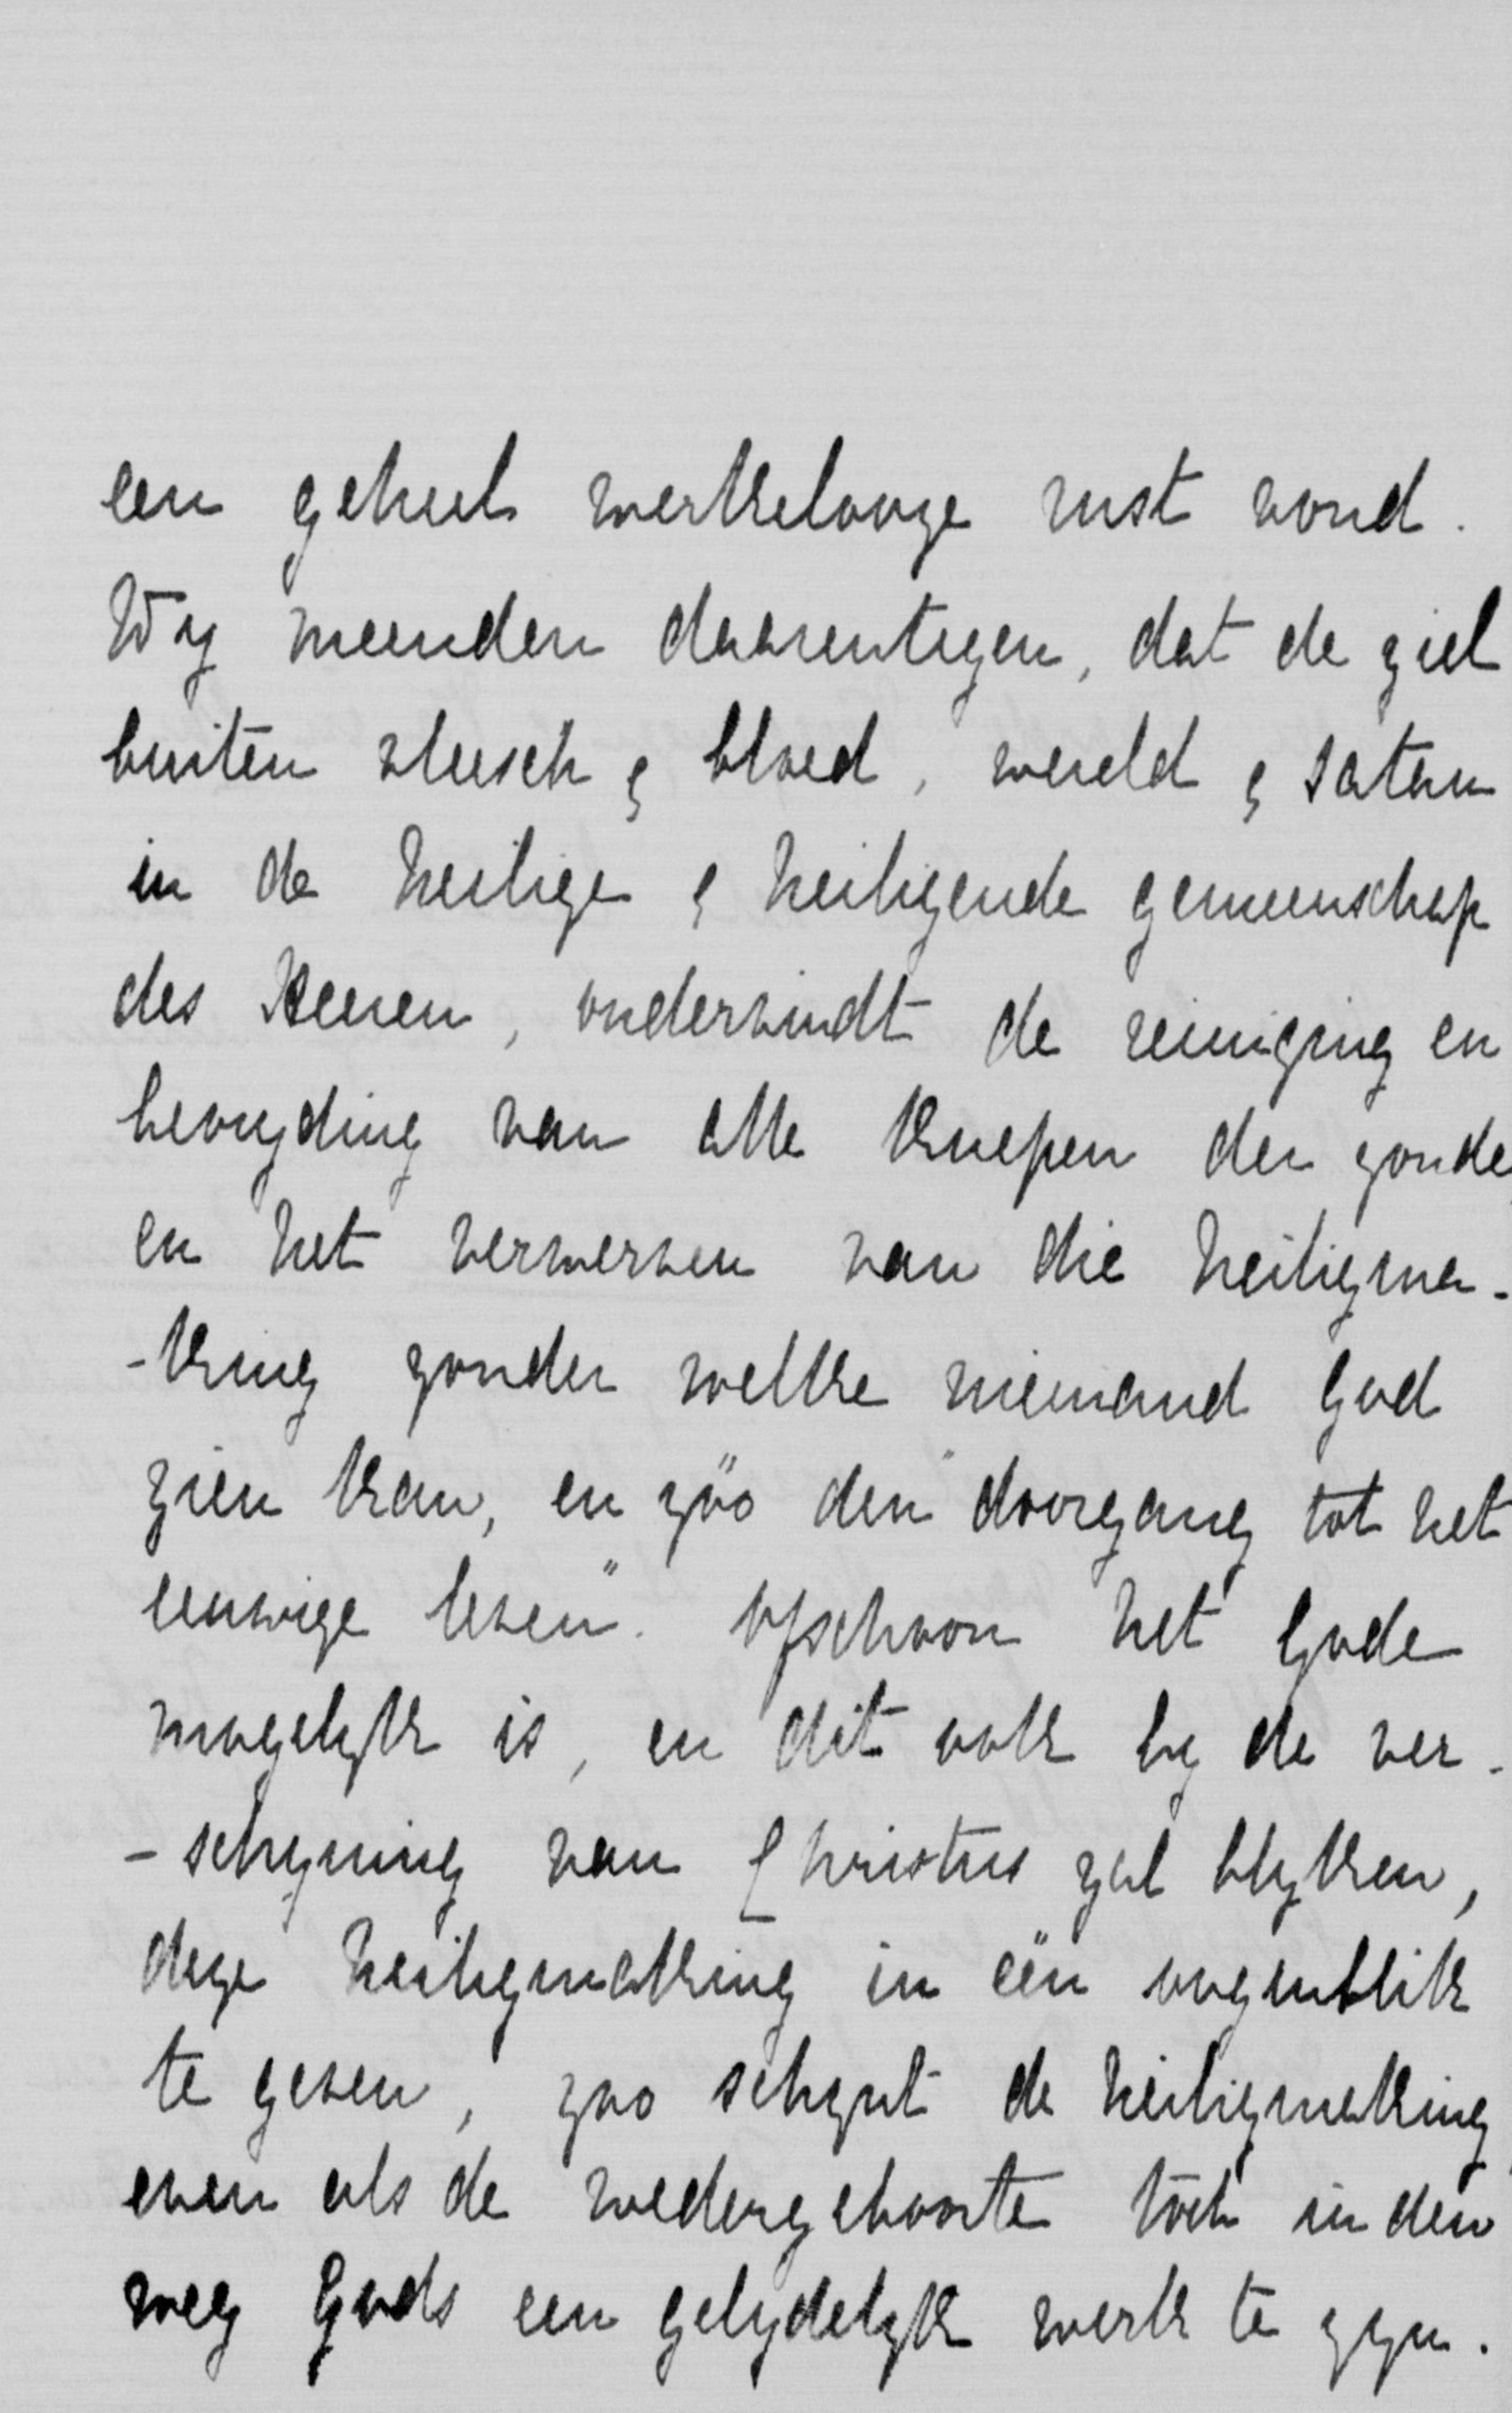 een geheel werkelooze rust vond.
Wy meenden daarentegen, dat de ziel
buiten vleesch & bloed, wereld & satan
in de heilige & heiligende gemeenschap
des Heeren, ondervindt de reiniging en
bevryding van alle knepen der zonde
en het verwerven van die heiligma-
-king zonder welke niemand God
zien kan, en zóó den "doorgang tot het
eeuwige leven". Ofschoon het Gode
mogelyk is, en dit ook by de ver-
-schyning van Christus zal blyken,
deze heiligmaking in één oogenblik
te geven, zoo schynt de heiligmaking
even als de wedergeboorte toch in den
weg Gods een gelydelyk werk te zyn.